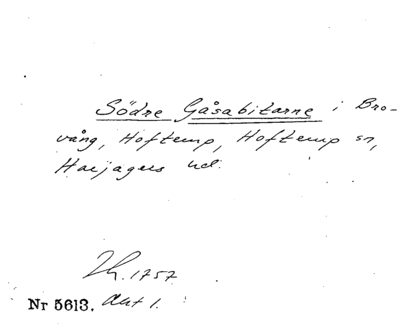 Södre Gåsabitarne i Bro-
vång, Hoftemp, Hoftemp sn,
Harjagers hd.
Lh. 1757
Nr 5613. Akt 1.